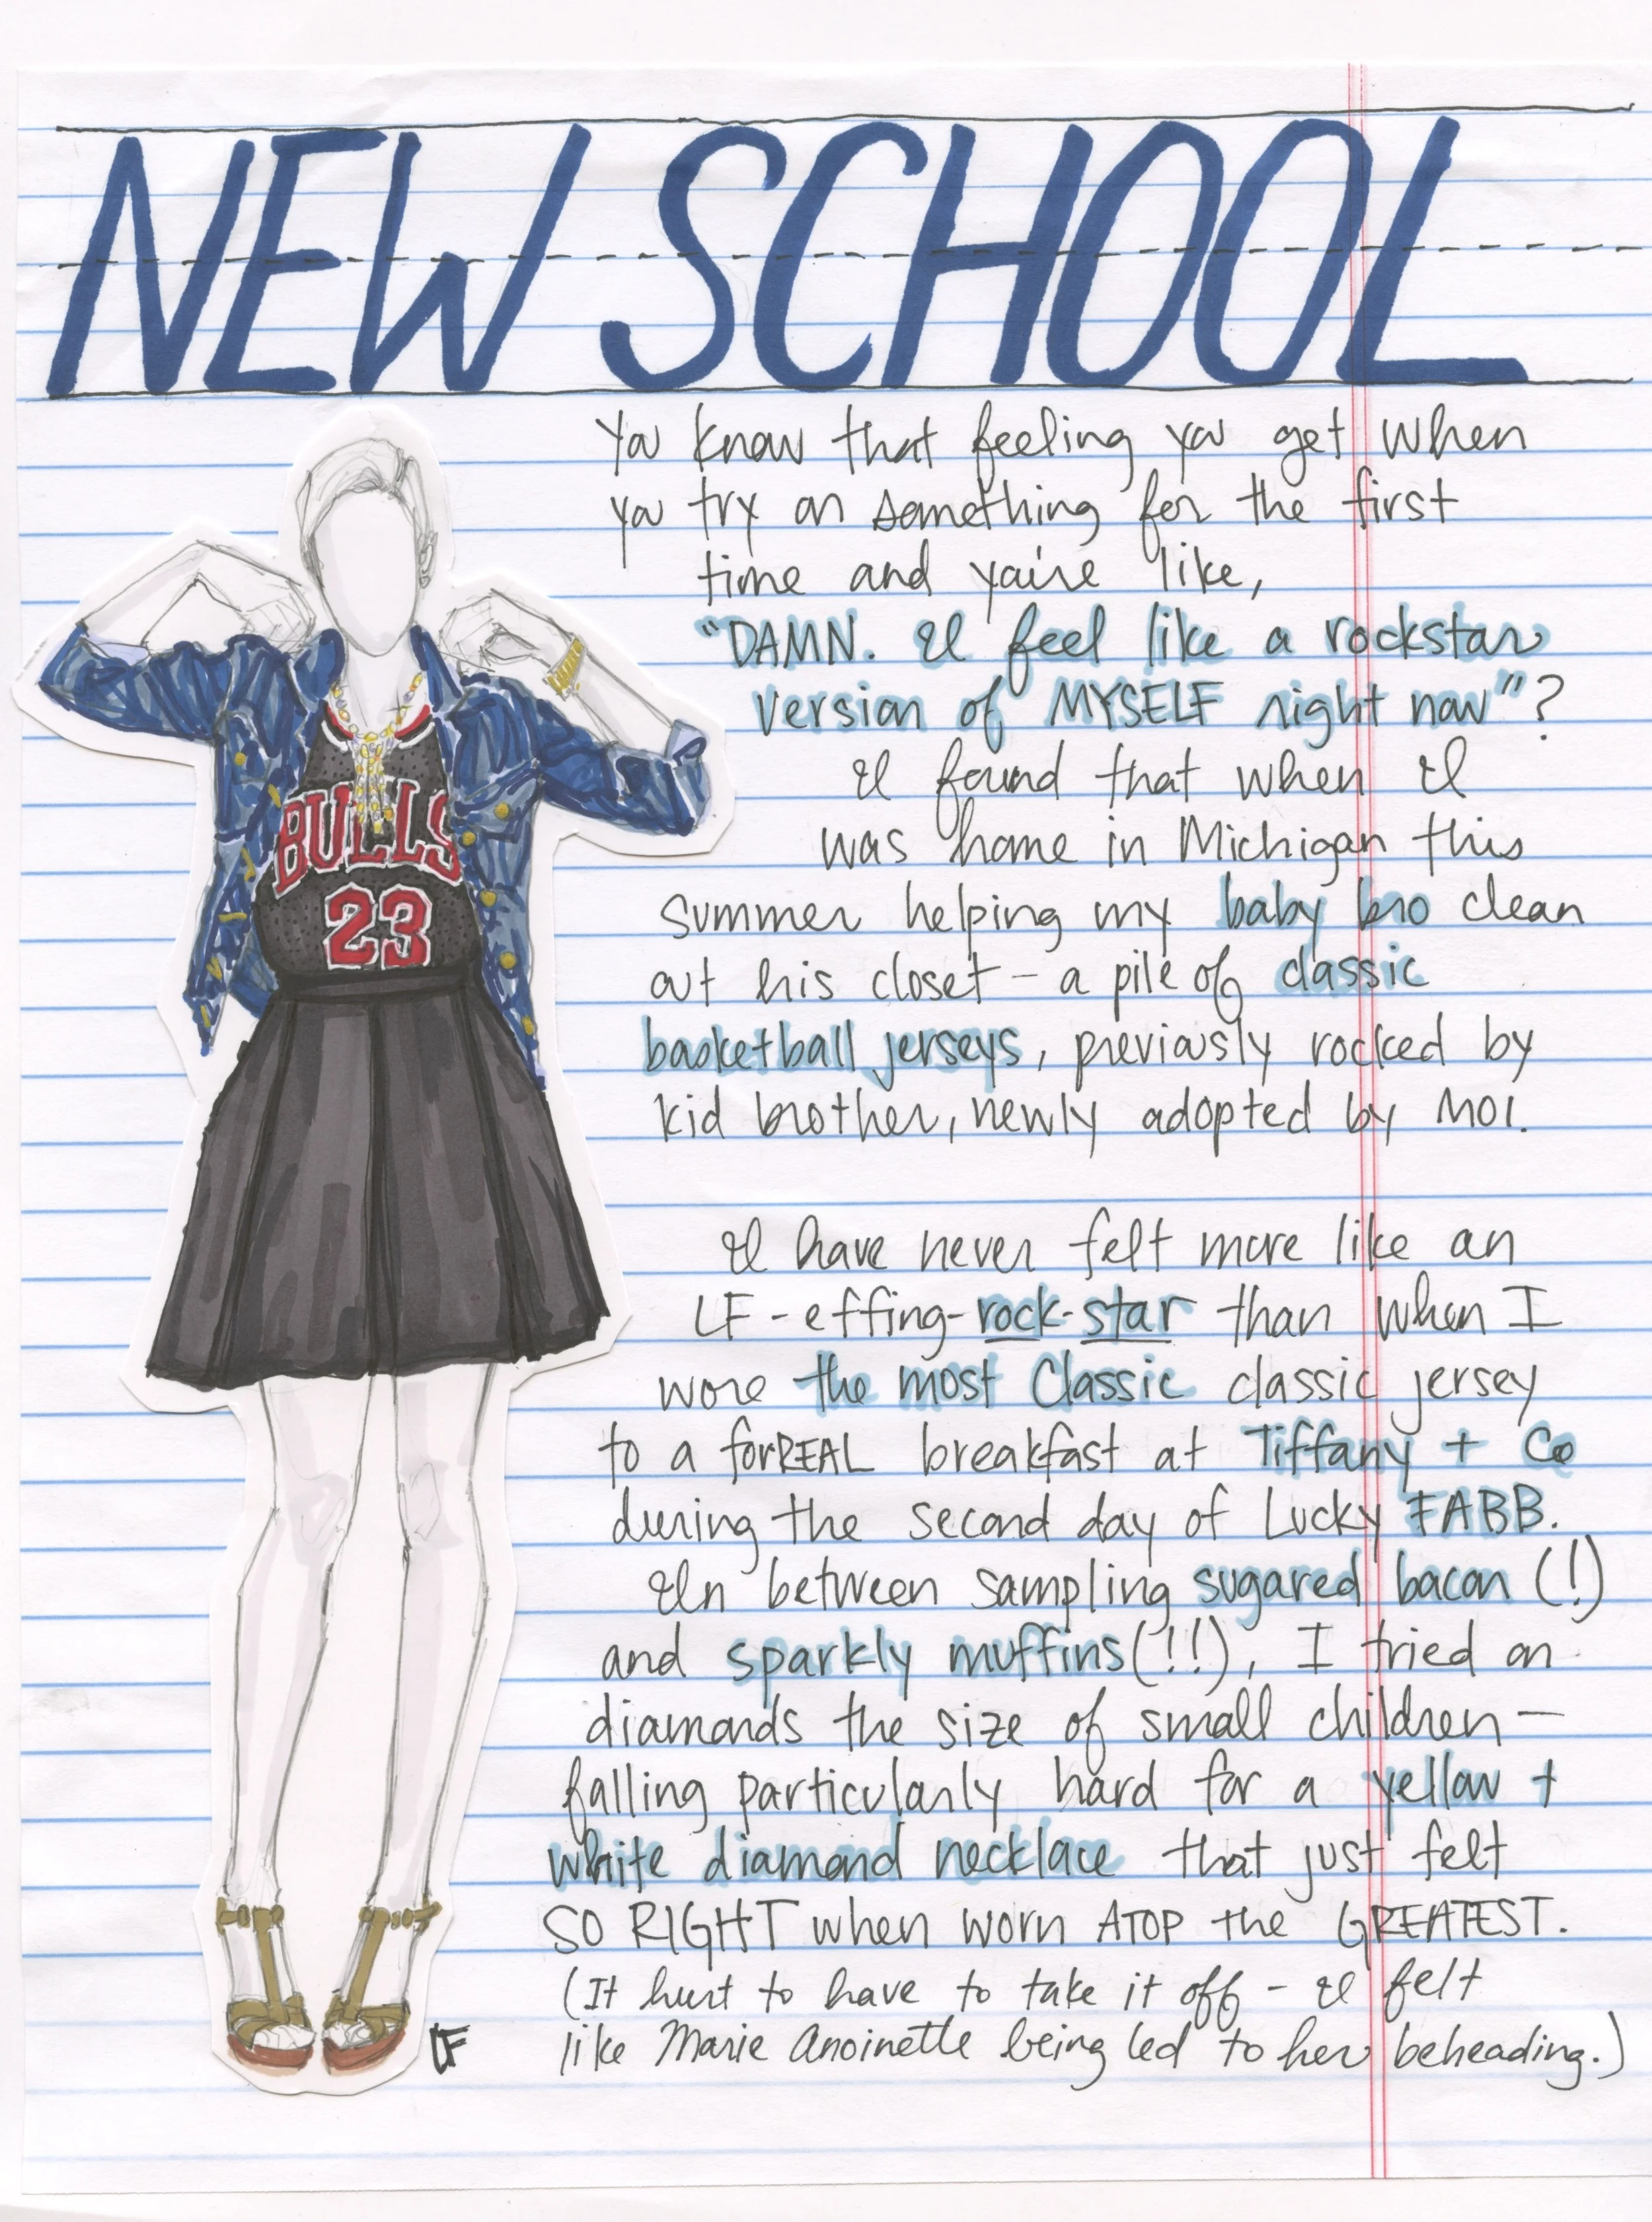 NEW SCHOOL
You know that feeling you get when
you try on something for the first
time and you're like,
"DAMN. I feel like a rockstar
version of MYSELF right now"?
I found that when I
was home in Michigan this
summer helping my baby bro clean
out his closet - a pile of classic
basketball jerseys, previously rocked by
kid brother, newly adopted by MOI.
I have never felt more like an
LF-effing-rock-star than when I
wore the most classic classic jersey
to a forREAL breakfast at Tiffany + Co
during the second day of Lucky FABB.
In between sampling sugared bacon (!)
and sparkly muffins (!!), I tried on
diamonds the size of small children -
falling particularly hard for a yellow +
white diamond necklace that just felt
SO RIGHT when worn ATOP the GREATEST.
(It hurt to have to take it off - I felt
like Marie Anoinette being led to her beheading.)
BULLS
23
LF